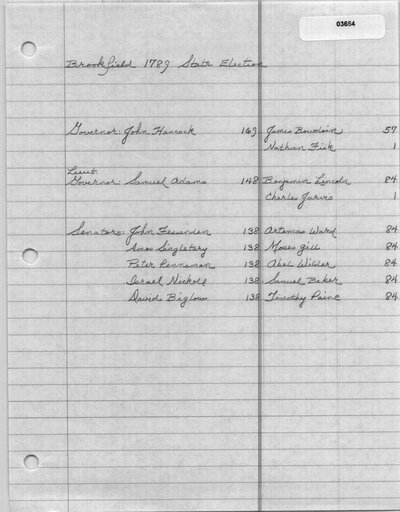 03654
Brookfield 1789 State Election
Governor: John Hancock 169 James Bowdoin 57
Nathan Fisk 1
Lieut.
Governor: Samuel Adams 148 Benjamin Lincoln 84
Charles Jarvis 1
Senators: John Fessenden 138 Artemas Ward 84
Amos Singletary 138 Moses Gill 84
Peter Penniman 138 Abel Wilder 84
Israel Nichols 138 Samuel Baker 84
David Biglow 138 Timothy Paine 84